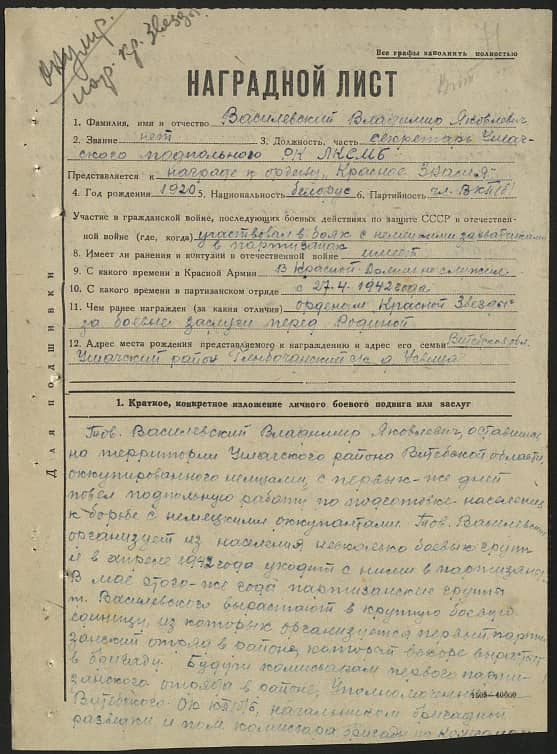 пр. Кр. Звезды
Все графы заполнить полностью
НАГРАДНОЙ ЛИСТ
1. Фамилия, имя и отчество Василевский Владимир Яковлевич
2. Звание нет 3. Должность, часть секретарь Ушач-
ского подпольного РК ЛКСМБ
Представляется к награде к ордену „Красное Знамя"
4. Год рождения 1920 5. Национальность белорус 6. Партийность чл. ВКП(б)
Участие в гражданской войне, последующих боевых действиях по защите СССР и отечествен-
ной войне (где, когда) участвовал в боях с немецкими захватчиками
в партизанах
8. Имеет ли ранения и контузии в отечественной войне имеет
9. С какого времени в Красной Армии В Красной Армии не служил
10. С какого времени в партизанском отряде с 27.4.1942 года
11. Чем ранее награжден (за какия отличия) орденом Красной Звезды
за боевые заслуги перед Родиной
12. Адрес места рождения представляемого к награждению и адрес его семьи Витебская обл.
Ушачский район с/с д.
Для подшивки
1. Краткое, конкретное изложение личного боевого подвига или заслуг
Тов. Василевский Владимир Яковлевич, оставшись
на территории Ушачского района Витебской области,
оккупированного немцами, с первых-же дней
повел подпольную работу по подготовке населения
к борьбе с немецкими оккупантами. Тов. Василевский
организует из населения несколько боевых групп
и в апреле 1942 года уходит с ними в партизаны.
В мае этого-же года партизанские группы
т. Василевского вырастают в крупную боевую
единицу, из которых организуется первый парти-
занский отряд в районе, который вскоре вырастает
в бригаду. Будучи комиссаром первого парти-
занского отряда в районе, Уполномоченным
Витебского ОК КП(б)Б, начальником бригадной
разведки и пом. комиссара бригады по комсомолу